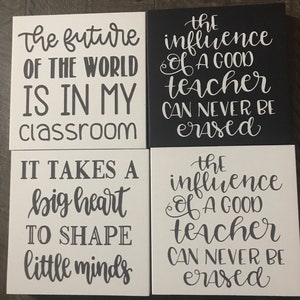 the future
OF THE WORLD
IS IN MY
classroom
the
influence
OF A GOOD
teacher
CAN NEVER BE
erased
IT TAKES A
big heart
TO SHAPE
little minds
the
influence
OF A GOOD
teacher
CAN NEVER BE
erased